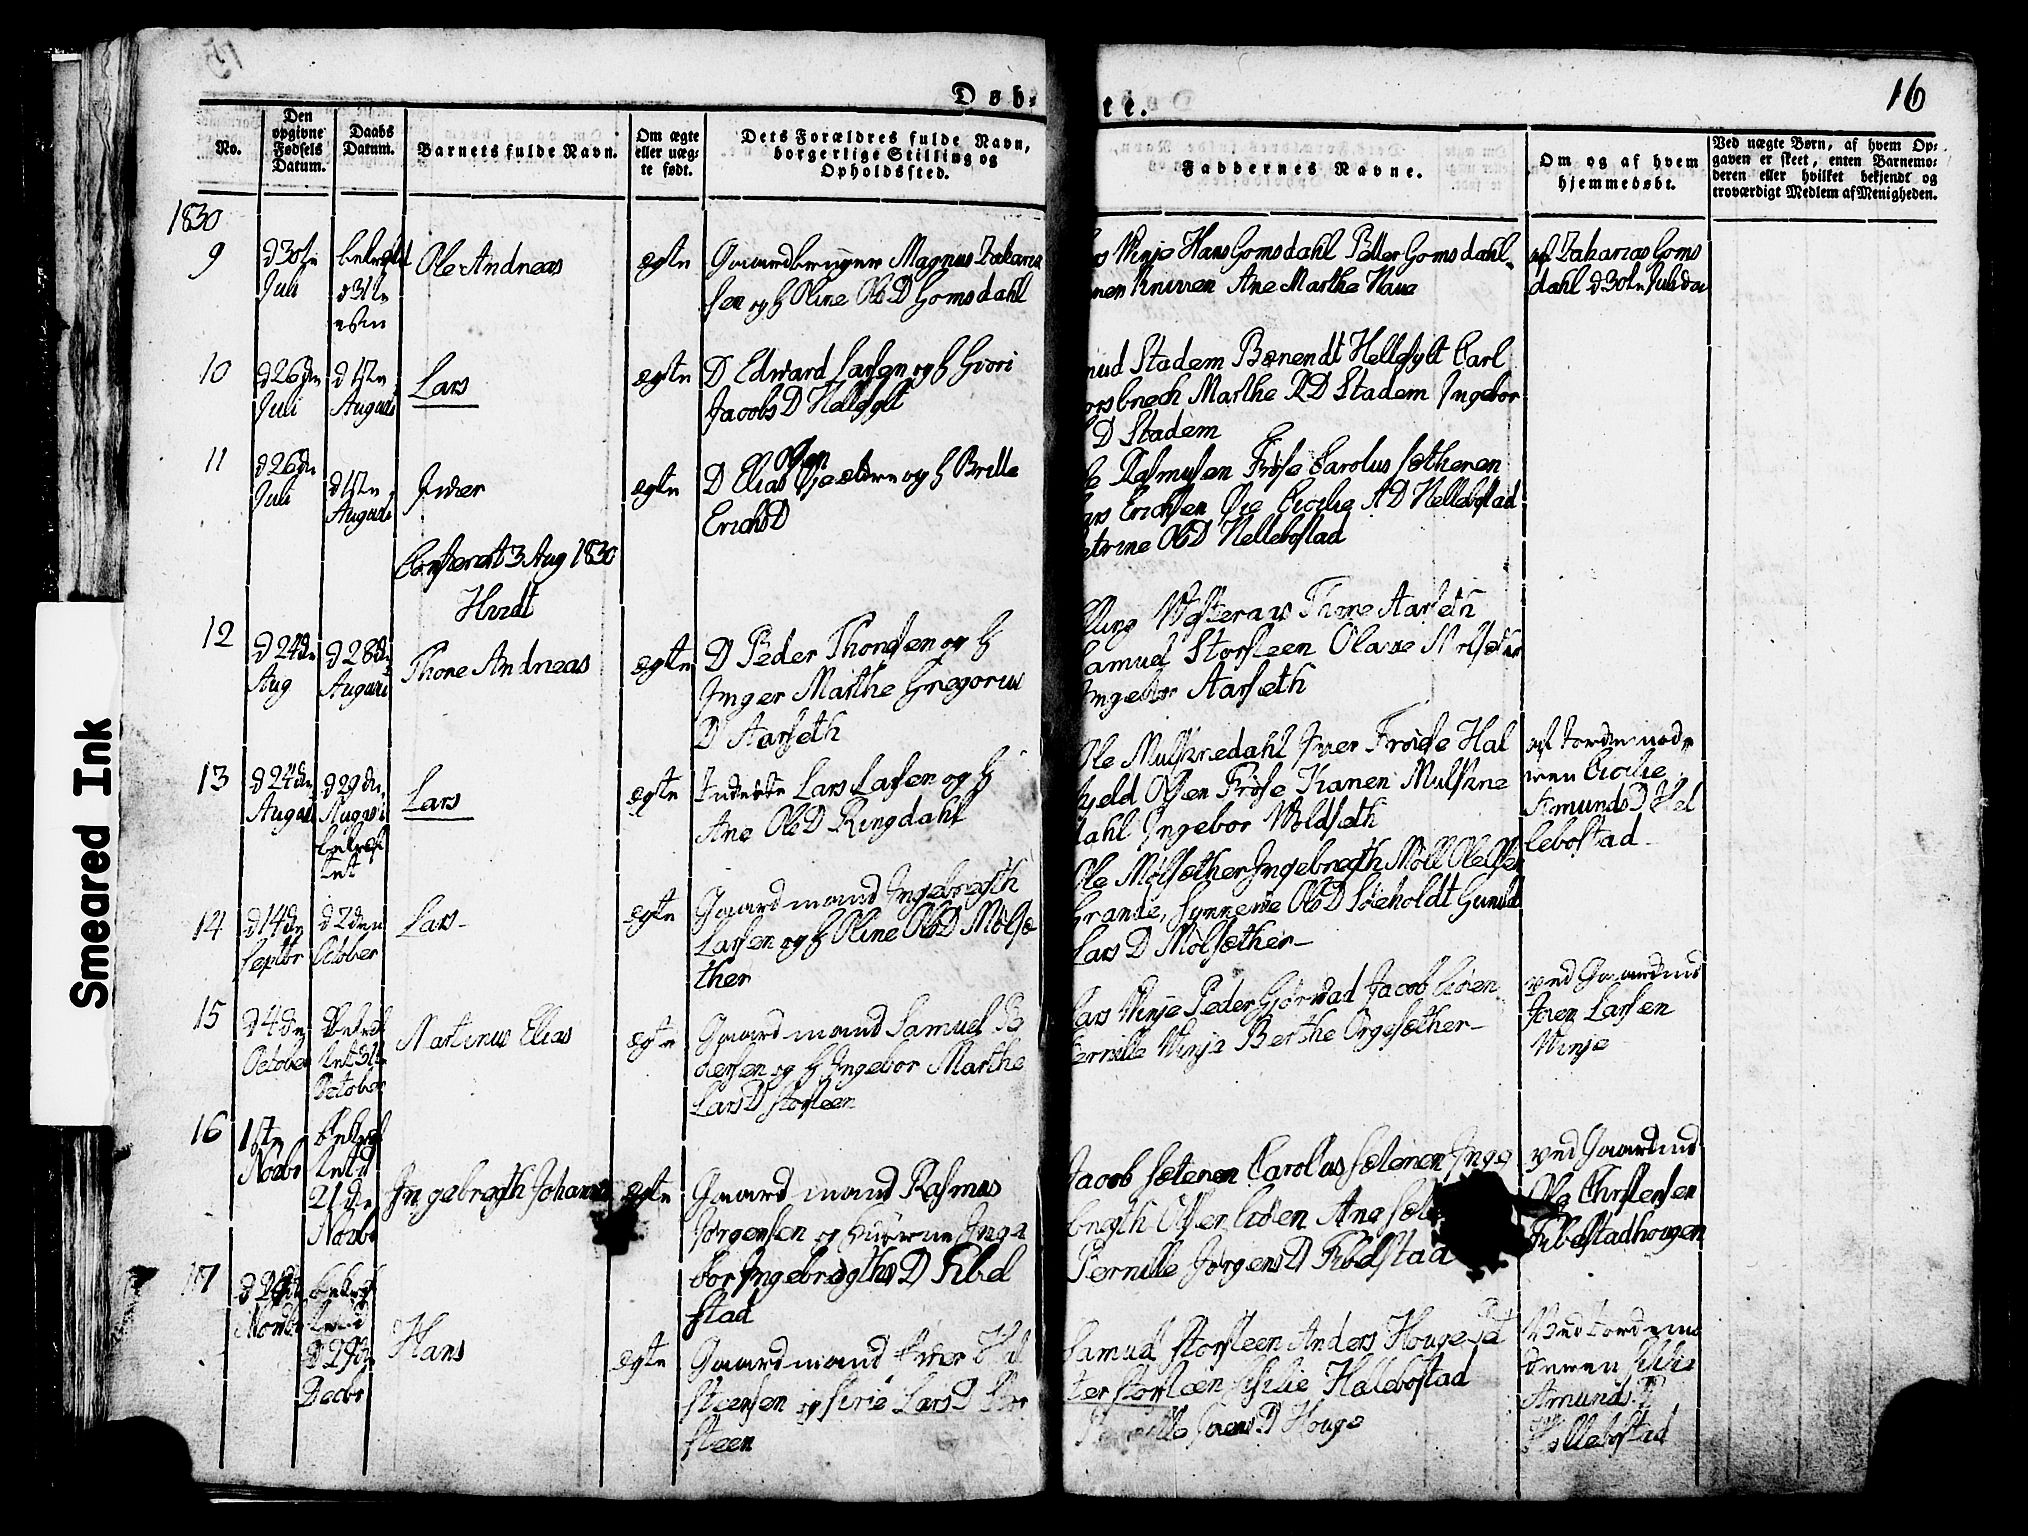 16
Døbte.
No.
Den opgivne Fødsels Datum.
Daabs Datum.
Barnets fulde Navn.
Om ægte eller uægte født.
Dets Forældres fulde Navn, borgerlige Stilling og Opholdssted.
Faddernes Navne.
Om og af hvem hjemmedøbt.
Ved uægte Børn, af hvem Opgaven er skeet, enten Barnemoderen eller hvilket bekjendt og troværdigt Medlem af Menigheden.
1830
9
d 30te
Juli
d 31te
Ole Andreas
ægte
Gaardbruger Magnus Zakaria
sen og H Oline OlsD Gomsdahl
Vinje Hans Gomsdahl Petter Gomsdahl
Ane Marthe Haue
af Zakarias Goms
dahl d 30te Juli
10
d 26de
Juli
d 1ste
Augusti
Lars
ægte
D Edward Larsen og H Giori
Jacobs D Hellesylt
Stadem Bærendt Hellesylt Carl
Marthe RD Stadem Ingebor
D Stadem
11
d 26de
Juli
d 1ste
Augusti
Iver
ægte
Olsen
D Elias og H Brille
Erichs D
Rasmusen Frøse Carolus Sætheren
Erichsen Øie Cicilie AD Hellebostad
OlsD Hellebostad
Confereret 3 Aug 1830
Hvidt
12
d 24de
Aug
d 28de
Augusti
Thore Andreas
ægte
D Peder Thoresen og H
Inger Marthe Gregorius
D Aarseth
Vesteraas Thore Aarseth
Samuel Storsteen Olave
Ingebor Aarseth
13
d 24de
August
d 29de
Augusti
Lars
ægte
Inderste Lars Larsen og H
Ane OlsD Ringdahl
Ole Mulskredahl Iver Frøise Hal
kjeld Olsen Frøse Karen Mulskre
dahl Ingebor Woldseth
af Jordemode
ren Cicilie
Amunds D Hel
lebostad
14
d 14de
Septbr
d 2den
October
Lars
ægte
Gaardmand Ingebregth
Larsen og H Oline OlsD Mølsæ
ther
Ole Mølsæther Ingebregth Møll Ole Olsen
Grande, Synneve OlsD Søeholdt Gunild
Lars D Mølsæther
15
d 4de
October
October
Martinus Elias
ægte
Gaardmand Samuel Pe
dersen og H Ingebor Marthe
Lars D Storsteen
Lars Vinje Peder Gjørvad Jacob Lièen
Pernille Vinje Berthe Orgesæther
ved Gaardmd
Iver Larsen
Vinje
16
1ste
Novbr
21de
Novbr
Ingebregth Johannes
ægte
Gaardmand Rasmus
Jørgensen og Hustrue Inge
bor Ingebregths D Fibel
stad
Jacob Sæteren Carolus Sæteren Inge
bregth Olsen Lièen Ane
Pernille Jørgens D Fibelstad
ved Gaardmd
Ole Christensen
Fibelstadhougen
17
Novbr
d 29de
Decbr
Hans
ægte
Gaardmand Iver Hal
steensen og Sirie Lars D Stor
steen
Samuel Storsteen Anders Houge Pet
ter Storsteen Sisilie Hallebostad
Pernille Ivers D Houge
Ved Jordemo
deren Silie
Amunds D
Hellebostad
Smeared Ink